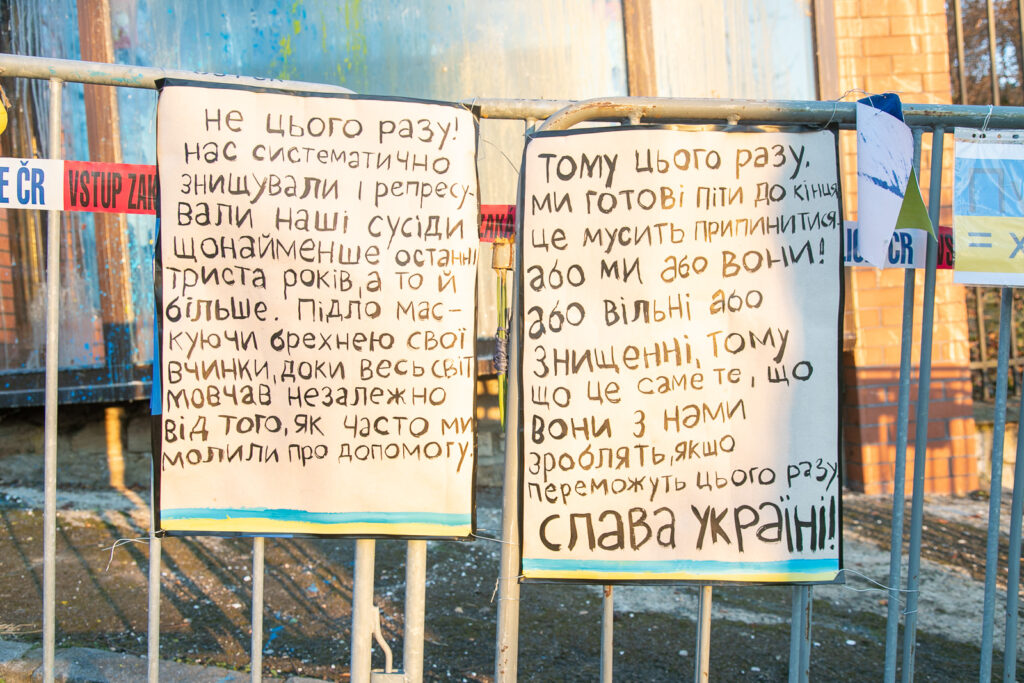 не цього разу!
нас систематично
знищували і репресу-
вали наші сусіди
щонайменше останні
триста років, а то й
більше. Підло мас-
куючи брехнею свої
вчинки, доки весь світ
мовчав незалежно
від того, як часто ми
молили про допомогу.
тому цього разу,
ми готові піти до кінця
це мусить припинитися.
або ми або вони!
або вільні або
знищенні, тому
що це саме те, що
вони з нами
зроблять, якщо
переможуть цього разу
слава Україні!
E ČR VSTUP ZAK
ZAKÁ
ČR VS
= x